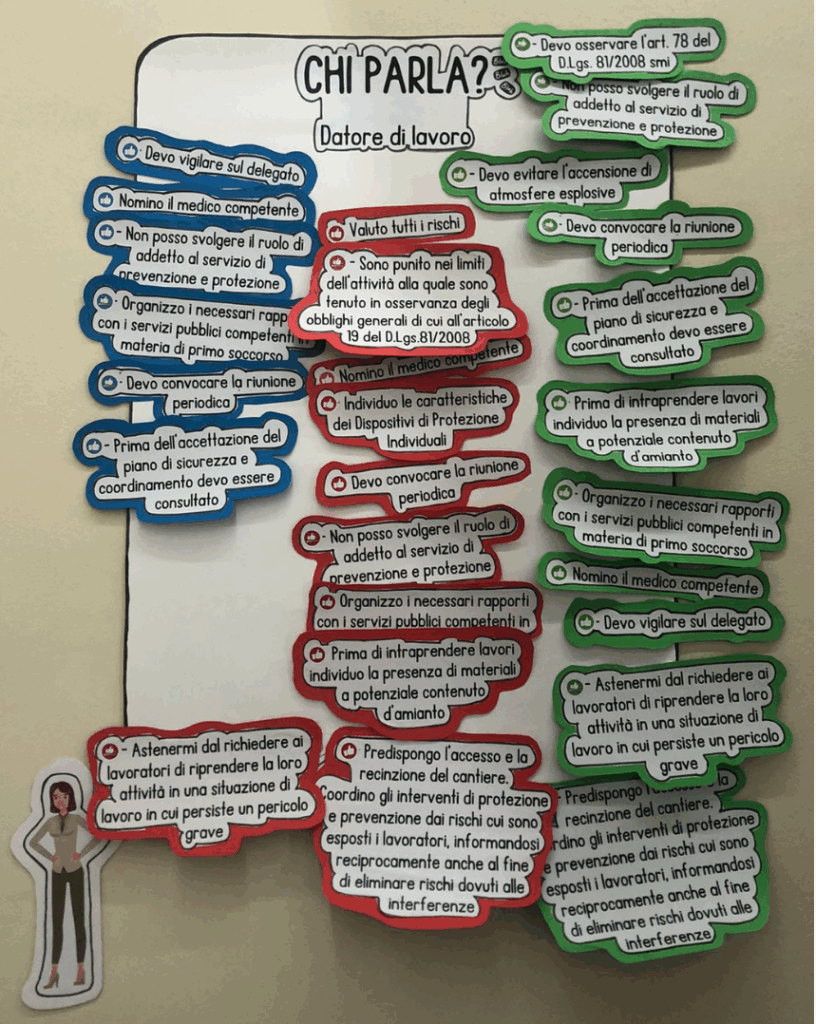 CHI PARLA?
Datore di lavoro
- Devo vigilare sul delegato
Nomino il medico competente
- Non posso svolgere il ruolo di
addetto al servizio di
prevenzione e protezione
- Organizzo i necessari rapp
con i servizi pubblici competenti in
materia di primo soccorso
- Devo convocare la riunione
periodica
- Prima dell'accettazione del
piano di sicurezza e
coordinamento devo essere
consultato
Valuto tutti i rischi
- Sono punito nei limiti
dell'attività alla quale sono
tenuto in osservanza degli
obblighi generali di cui all'articolo
19 del D.Lgs.81/2008
Nomino il medico competente
- Individuo le caratteristiche
dei Dispositivi di Protezione
Individuali
- Devo convocare la riunione
periodica
- Non posso svolgere il ruolo di
addetto al servizio di
prevenzione e protezione
Organizzo i necessari rapporti
con i servizi pubblici competenti in
Prima di intraprendere lavori
individuo la presenza di materiali
a potenziale contenuto
d'amianto
- Astenermi dal richiedere ai
lavoratori di riprendere la loro
attività in una situazione di
lavoro in cui persiste un pericolo
grave
Predispongo l'accesso e la
recinzione del cantiere.
Coordino gli interventi di protezione
e prevenzione dai rischi cui sono
esposti i lavoratori, informandosi
reciprocamente anche al fine
di eliminare rischi dovuti alle
interferenze
- Devo osservare l'art. 78 del
D.Lgs. 81/2008 smi
Non posso svolgere il ruolo di
addetto al servizio di
prevenzione e protezione
- Devo evitare l'accensione di
atmosfere esplosive
- Devo convocare la riunione
periodica
- Prima dell'accettazione del
piano di sicurezza e
coordinamento devo essere
consultato
- Prima di intraprendere lavori
individuo la presenza di materiali
a potenziale contenuto
d'amianto
- Organizzo i necessari rapporti
con i servizi pubblici competenti in
materia di primo soccorso
Nomino il medico competente
- Devo vigilare sul delegato
- Astenermi dal richiedere ai
lavoratori di riprendere la loro
attività in una situazione di
lavoro in cui persiste un pericolo
grave
- Predispongo la
recinzione del cantiere.
rdino gli interventi di protezione
e prevenzione dai rischi cui sono
esposti i lavoratori, informandosi
reciprocamente anche al fine
di eliminare rischi dovuti alle
interferenze